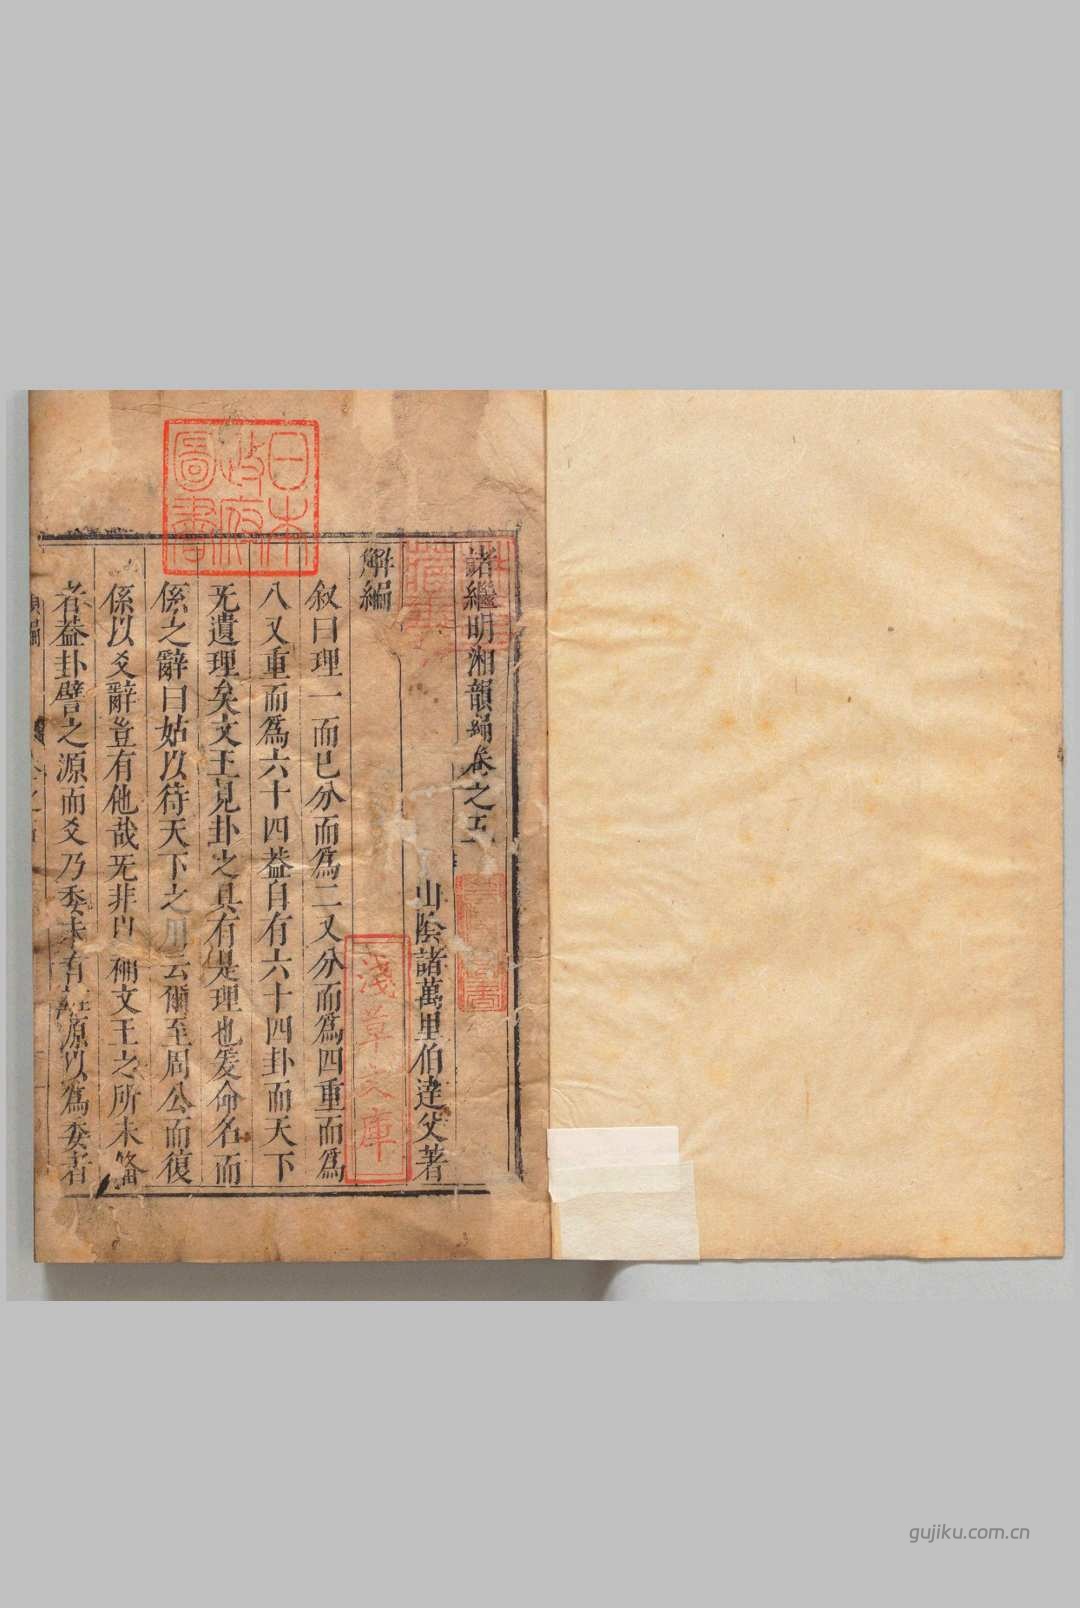 諸繼明湘韻編卷之五
山陰諸萬里伯達父著
觧編
叙曰理一而已分而爲二又分而爲四重而爲
八又重而爲六十四葢自有六十四卦而天下
无遺理矣文王見卦之具有是理也爰命名而
係之辭曰姑以待天下之用云爾至周公而復
係以爻辭豈有他哉旡非以補文王之所未俻
者葢卦譬之源而爻乃委未有源以為委者
日本
政府
圖書
淺草文庫
gujiku.com.cn